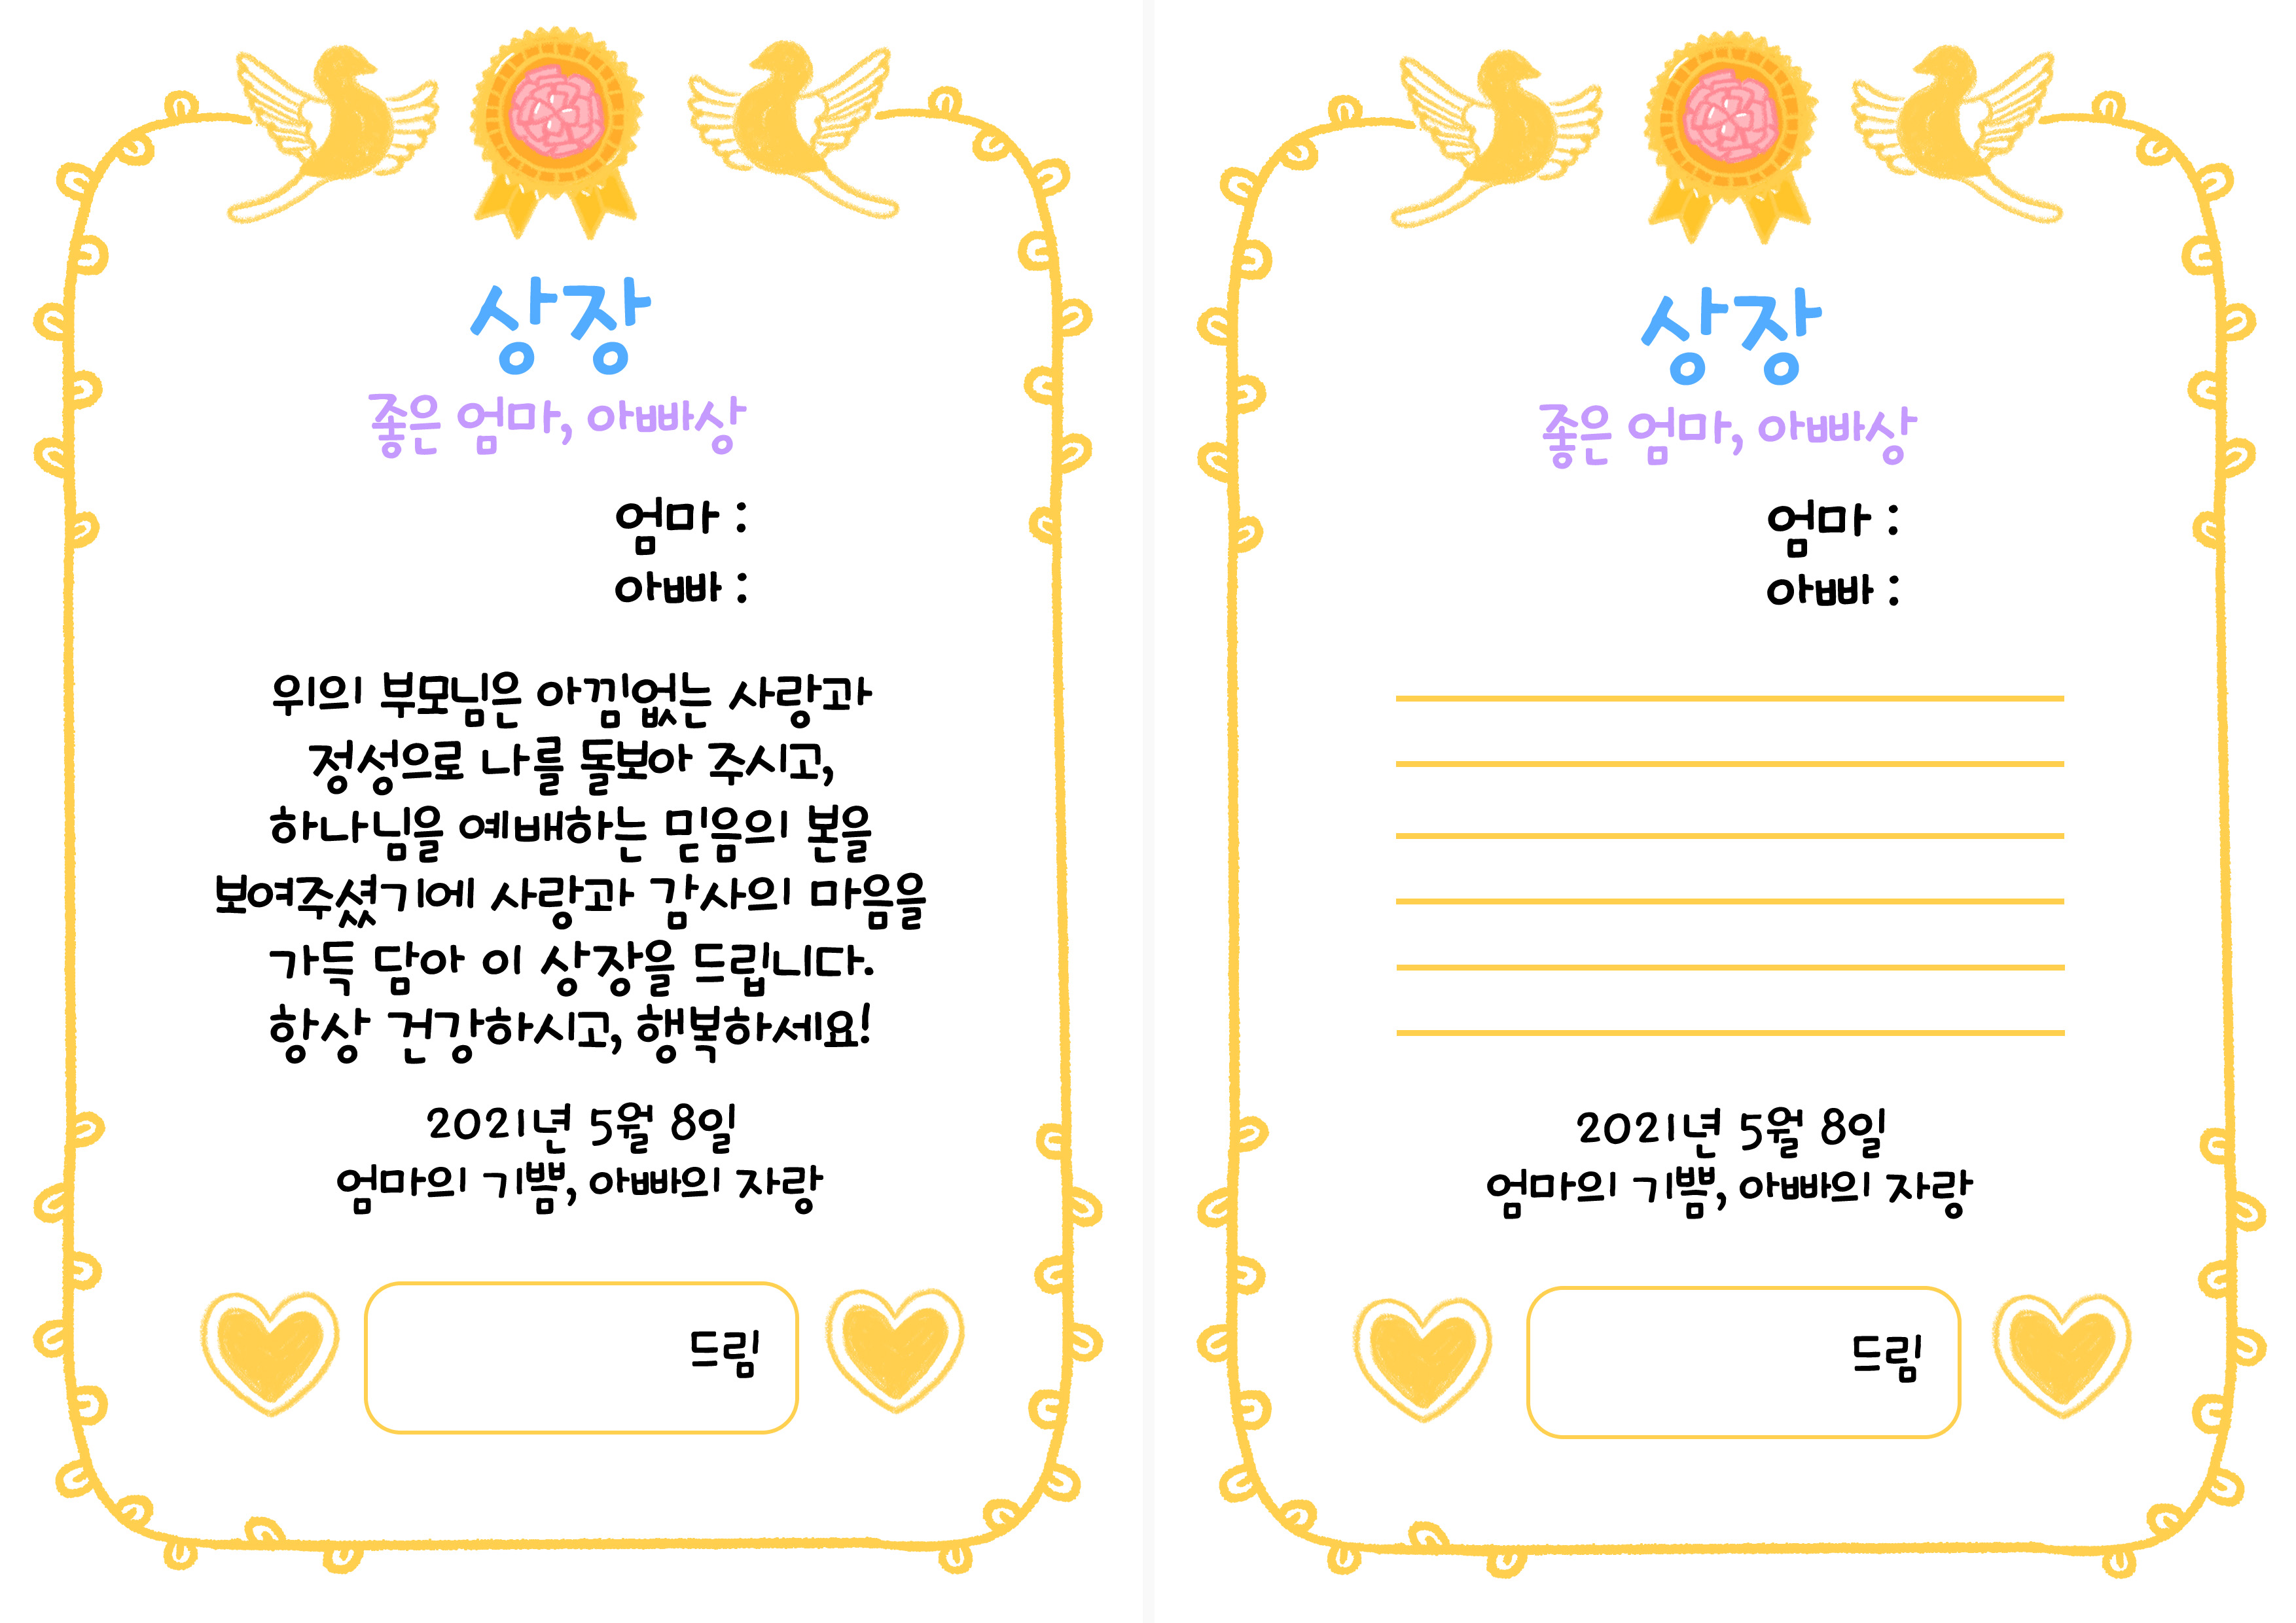 상장
좋은 엄마, 아빠상
엄마 :
아빠 :
위의 부모님은 아낌없는 사랑과
정성으로 나를 돌보아 주시고,
하나님을 예배하는 믿음의 본을
보여주셨기에 사랑과 감사의 마음을
가득 담아 이 상장을 드립니다.
항상 건강하시고, 행복하세요!
2021년 5월 8일
엄마의 기쁨, 아빠의 자랑
드림
상장
좋은 엄마, 아빠상
엄마 :
아빠 :
2021년 5월 8일
엄마의 기쁨, 아빠의 자랑
드림